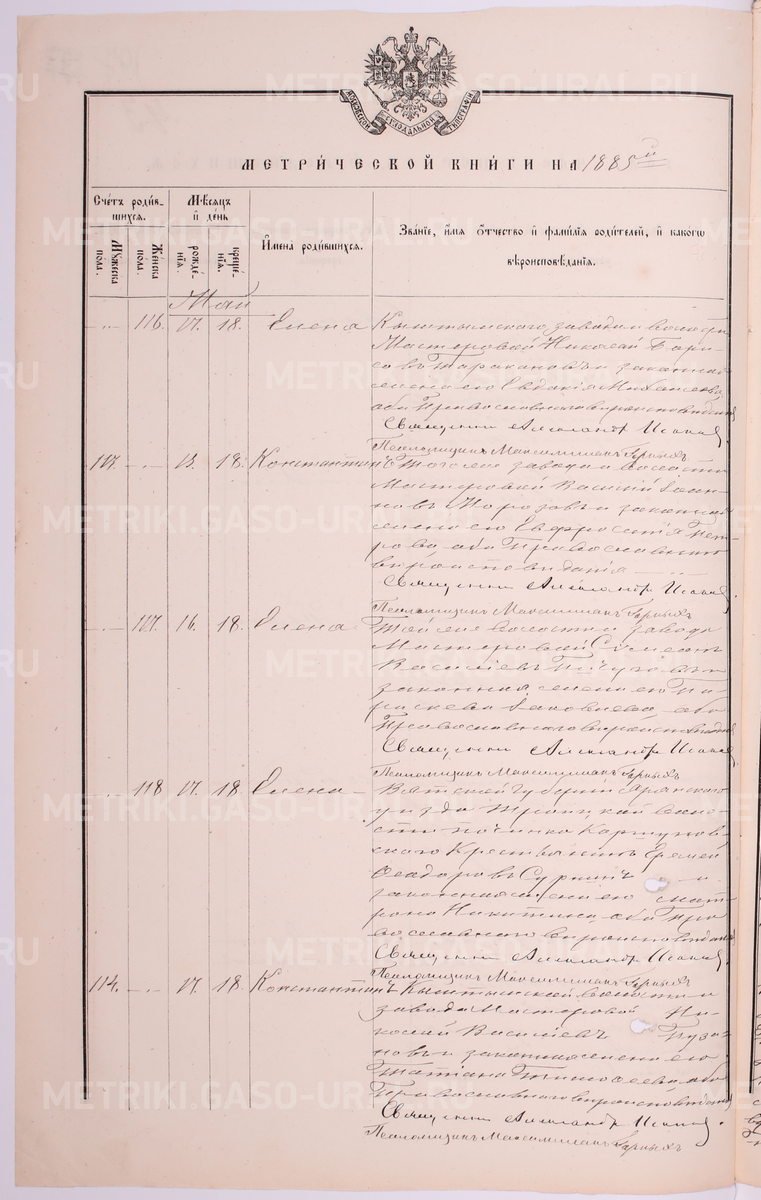 МОСКОВСКОЙ СѴНОДАЛЬНОЙ ТИПОГРАФІИ
МЕТРИ́ЧЕСКОЙ КНИ́ГИ НА 1885й
Сче́тъ роди́вшихся.
Мꙋ́жеска пола.
Же́нска по́ла.
Мѣсяцъ и де́нь
рожде́нїя.
креще́нїя.
И҆мена роди́вшихся.
Зва́нїе, и҆́мя ѻ҆́тчество и҆ фами́лїя роди́телей, и҆ како́гѡ
вѣроисповѣ́данїя.
Май
116. 17. 18. Елена
Кыштымскаго завода и волости
Мастеровой Николай Бори-
совъ Таракановъ и законная
жена его Евдокія
оба Православнаго вѣроисповѣданія
Священникъ Александръ
Псаломщикъ Максимиліанъ
13. 18. Константинъ
Тогоже завода и волости
Мастеровой Василій Іоан-
новъ Морозовъ и законная
жена его Евфросинія Пет-
рова оба Православнаго
вѣроисповѣданія
Священникъ Александръ
Псаломщикъ Максимиліанъ
117. 16. 18. Елена
Той же волости завода
Мастеровой Симеонъ
Василіевъ и
законная жена его Па-
раскева Іаковлева оба
Православнаго вѣроисповѣданія
Священникъ Александръ
Псаломщикъ Максимиліанъ
118 17. 18. Елена
Вятской Губерніи Яранскаго
уѣзда Троицкой воло-
сти починка
Крестьянинъ Еремей
Ѳеодоровъ и
законная жена его Мат-
рона Никитина, оба Пра-
вославнаго вѣроисповѣданія
Священникъ Александръ
Псаломщикъ Максимиліанъ
114. 17. 18. Константинъ
Кыштымской волости и
завода Мастеровой Ни-
колай Василіевъ Пуза-
новъ и законная жена его
Татіана Тимоѳеева оба
Православнаго вѣроисповѣданія
Священникъ Александръ
Псаломщикъ Максимиліанъ
METRIKI.GASO-URAL.RU